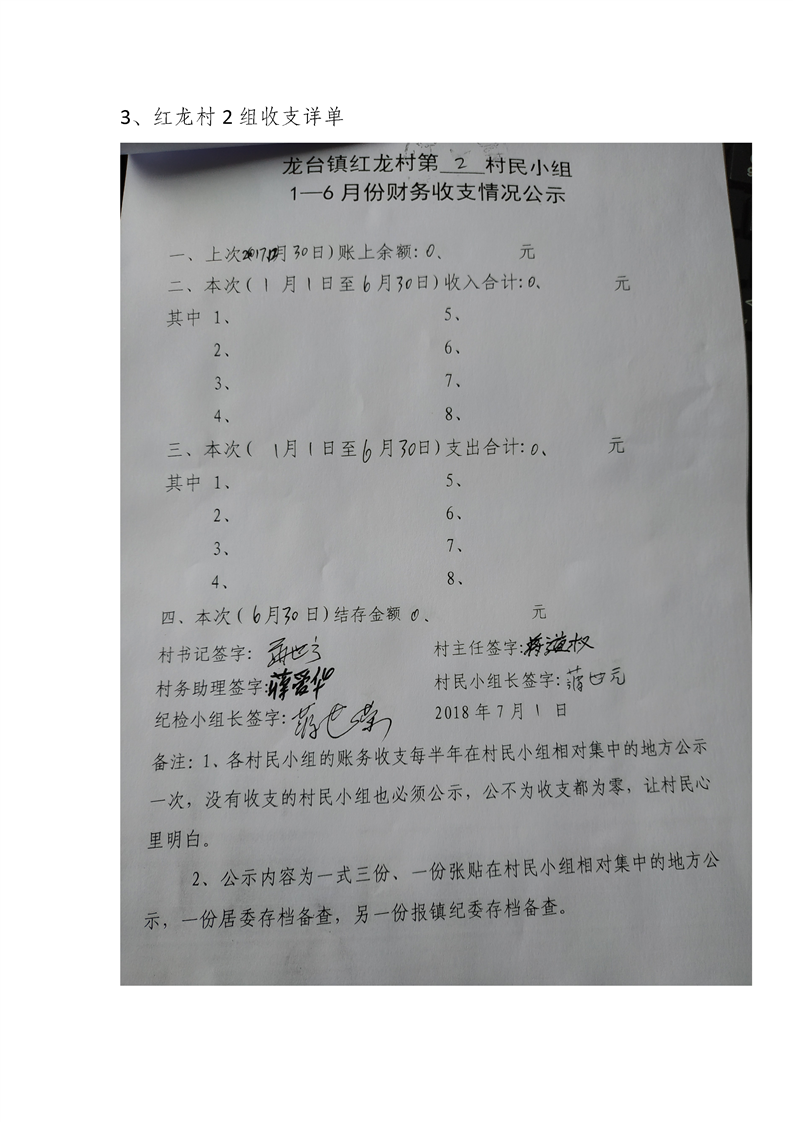 3、红龙村 2 组收支详单
龙台镇红龙村第 2 村民小组
1—6 月份财务收支情况公示
一、上次2017.12月30日)账上余额:0、 元
二、本次( 1 月 1 日至 6 月 30 日)收入合计:0、 元
其中 1、 5、
2、 6、
3、 7、
4、 8、
三、本次( 1 月 1 日至 6 月 30 日)支出合计:0、 元
其中 1、 5、
2、 6、
3、 7、
4、 8、
四、本次( 6 月 30 日)结存金额 0、 元
村书记签字: 村主任签字:蒋道权
村务助理签字:蒋爱华 村民小组长签字:蒋世元
纪检小组长签字: 2018 年 7 月 1 日
备注:1、各村民小组的账务收支每半年在村民小组相对集中的地方公示
一次，没有收支的村民小组也必须公示，公不为收支都为零，让村民心
里明白。
2、公示内容为一式三份、一份张贴在村民小组相对集中的地方公
示，一份居委存档备查，另一份报镇纪委存档备查。